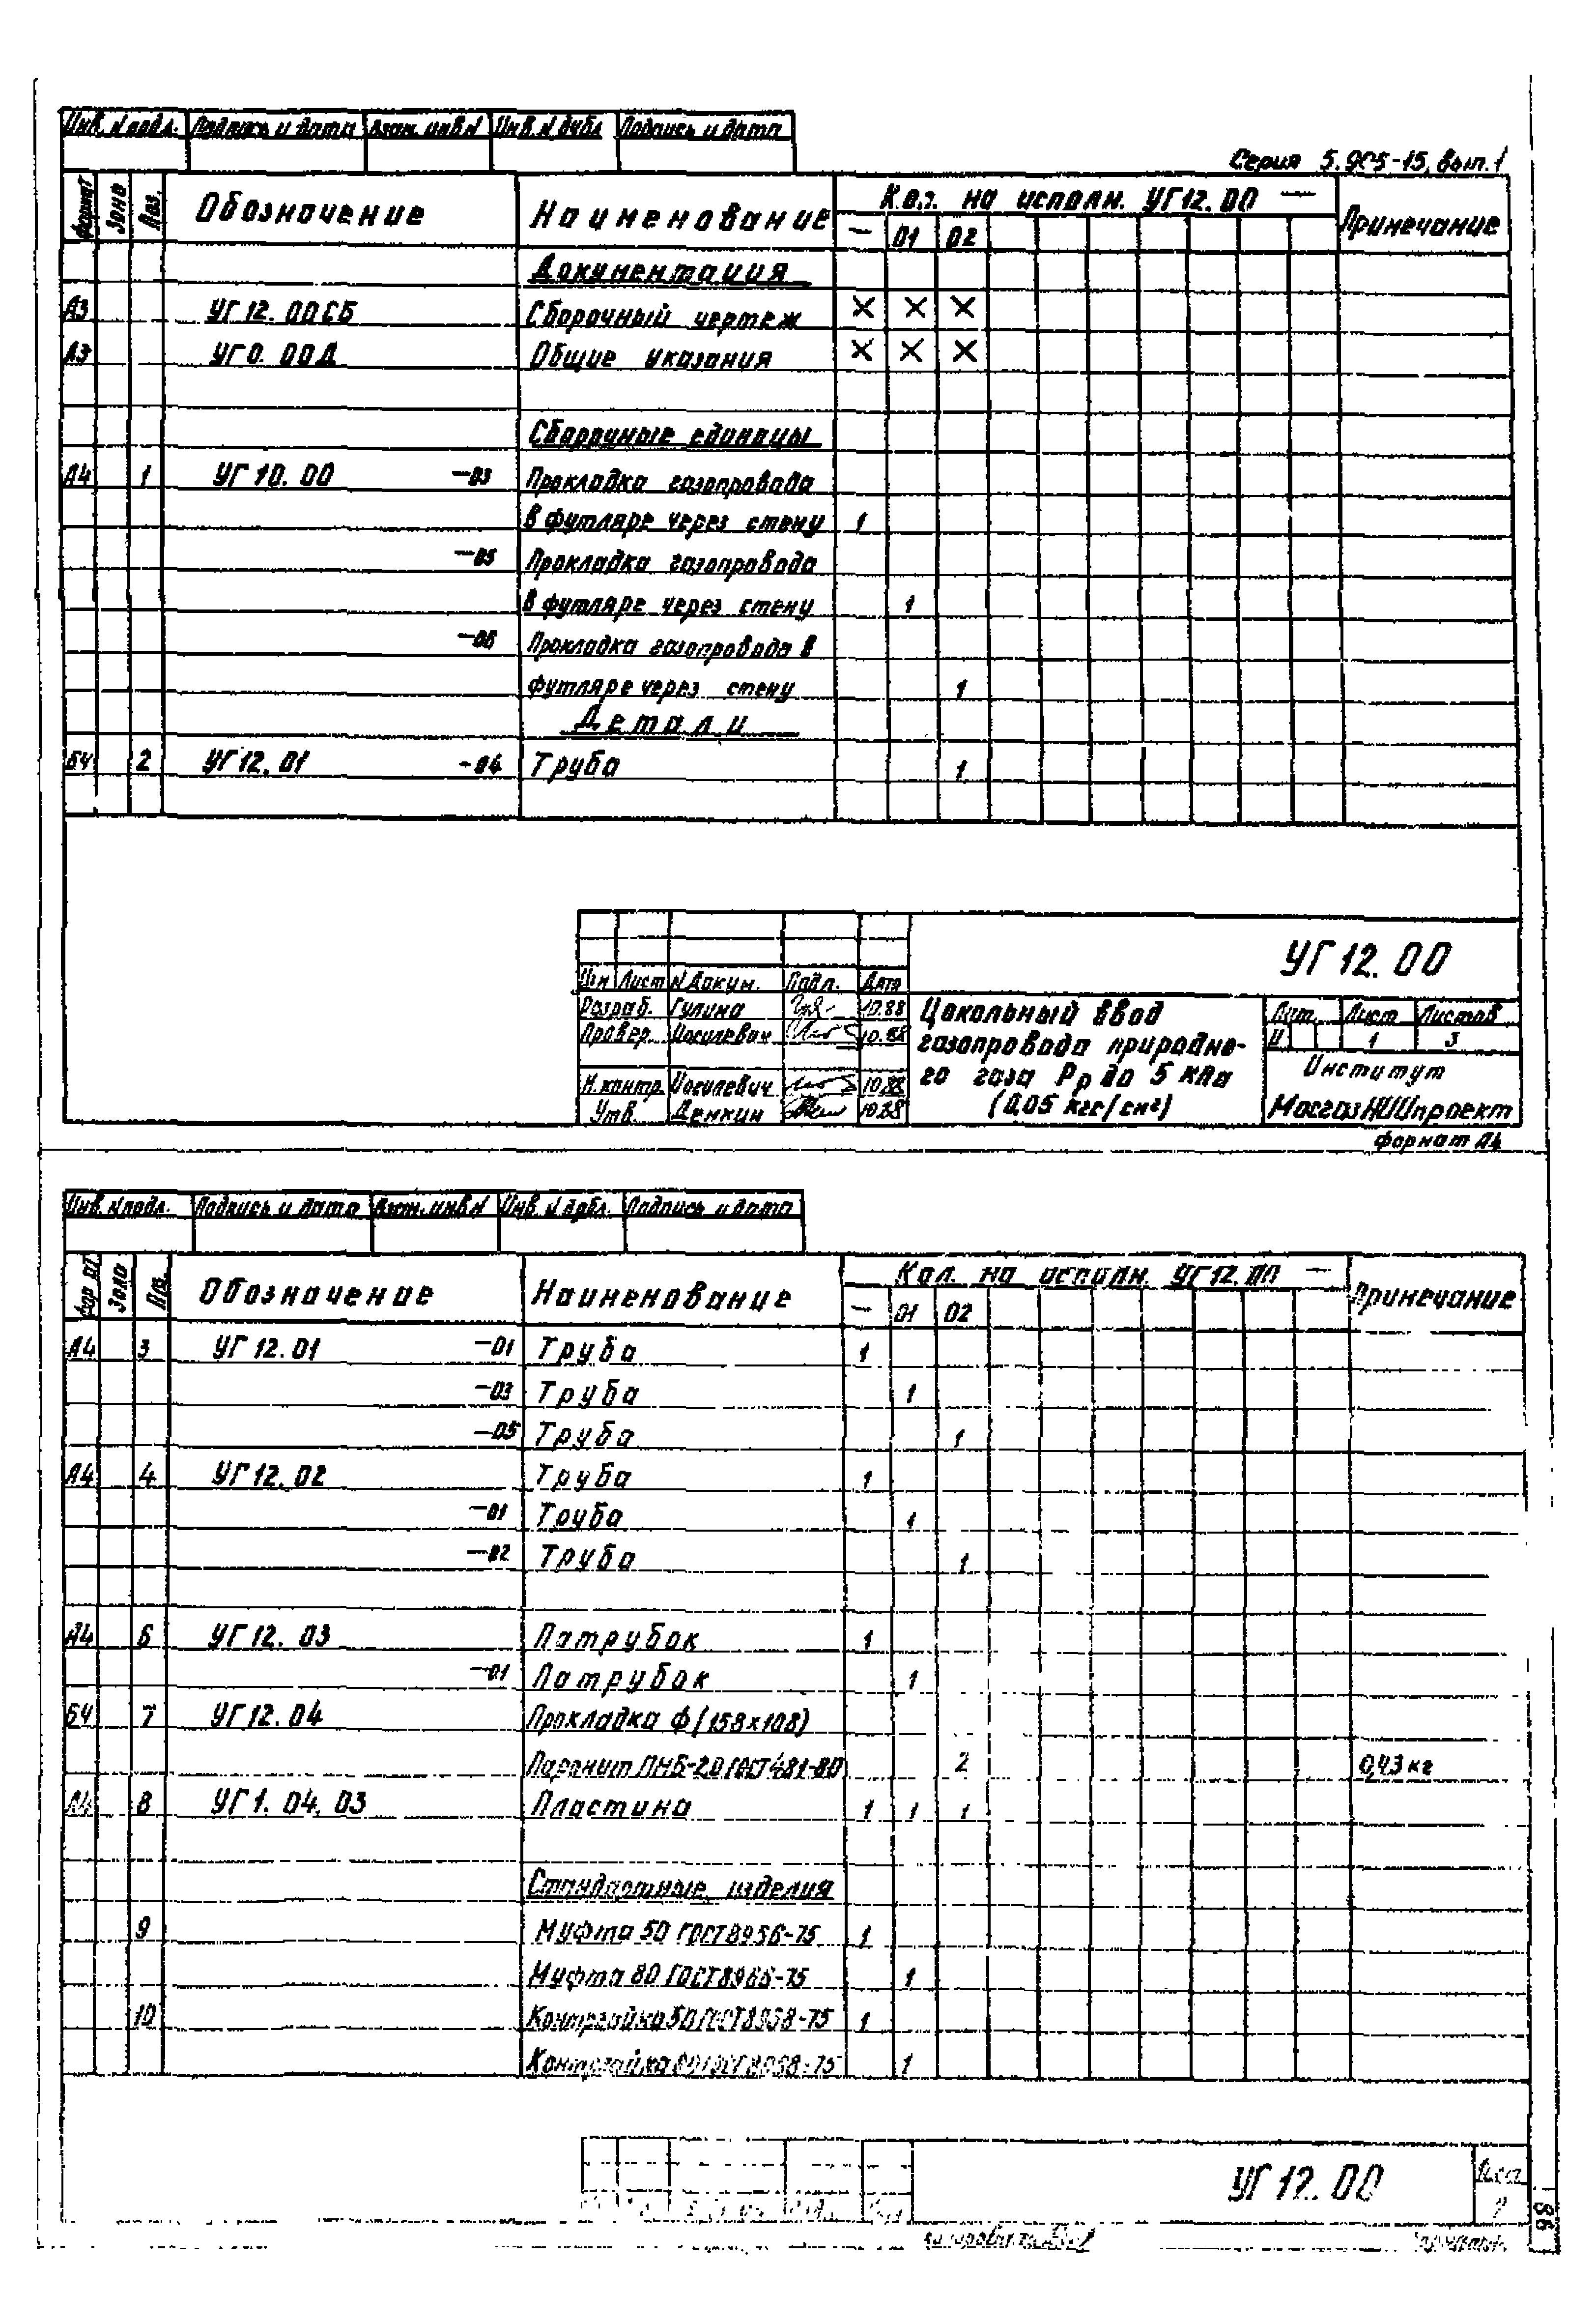 Инв. N подл. Подпись и дата Взам. инв N Инв. N дубл Подпись и дата
Серия 5.905-15, вып. 1
Формат Зона Поз. Обозначение Наименование Кол. на исполн. УГ12.00 — Примечание
— 01 02
Документация
А3 УГ12.00СБ Сборочный чертеж × × ×
А3 УГ0.00Д Общие указания × × ×
Сборочные единицы
А4 1 УГ10.00 —03 Прокладка газопровода
в футляре через стену 1
—05 Прокладка газопровода
в футляре через стену 1
—06 Прокладка газопровода в
футляре через стену 1
Детали
БЧ 2 УГ12.01 -04 Труба 1
УГ12.00
Изм Лист N Докум. Подп. Дата
Разраб. Гулина 10.88
Провер. Иоселевич 10.88
Н.контр. Иоселевич 10.88
Утв. Денкин 10.88
Цокольный ввод
газопровода природно-
го газа Рр до 5 кПа
(0,05 кгс/см²)
Лит. Лист Листов
И 1 3
Институт
МосгазНИИпроект
формат А4
Инв. N подл. Подпись и дата Взам. инв N Инв. N дубл. Подпись и дата
Формат Зона Поз. Обозначение Наименование Кол. на исполн. УГ12.00 — Примечание
— 01 02
А4 3 УГ12.01 —01 Труба 1
—03 Труба 1
—05 Труба 1
А4 4 УГ12.02 Труба 1
—01 Труба 1
—02 Труба 1
А4 6 УГ12.03 Патрубок 1
—01 Патрубок 1
БЧ 7 УГ12.04 Прокладка ф(158×108)
Паронит ПМБ-2,0 ГОСТ481-80 2 0,43 кг
А4 8 УГ1.04.03 Пластина 1 1 1
Стандартные изделия
9 Муфта 50 ГОСТ8956-75 1
Муфта 80 ГОСТ8966-75 1
10 Контргайка 50 ГОСТ8958-75 1
Контргайка 80 ГОСТ8958-75 1
УГ12.00
Лист
2
86